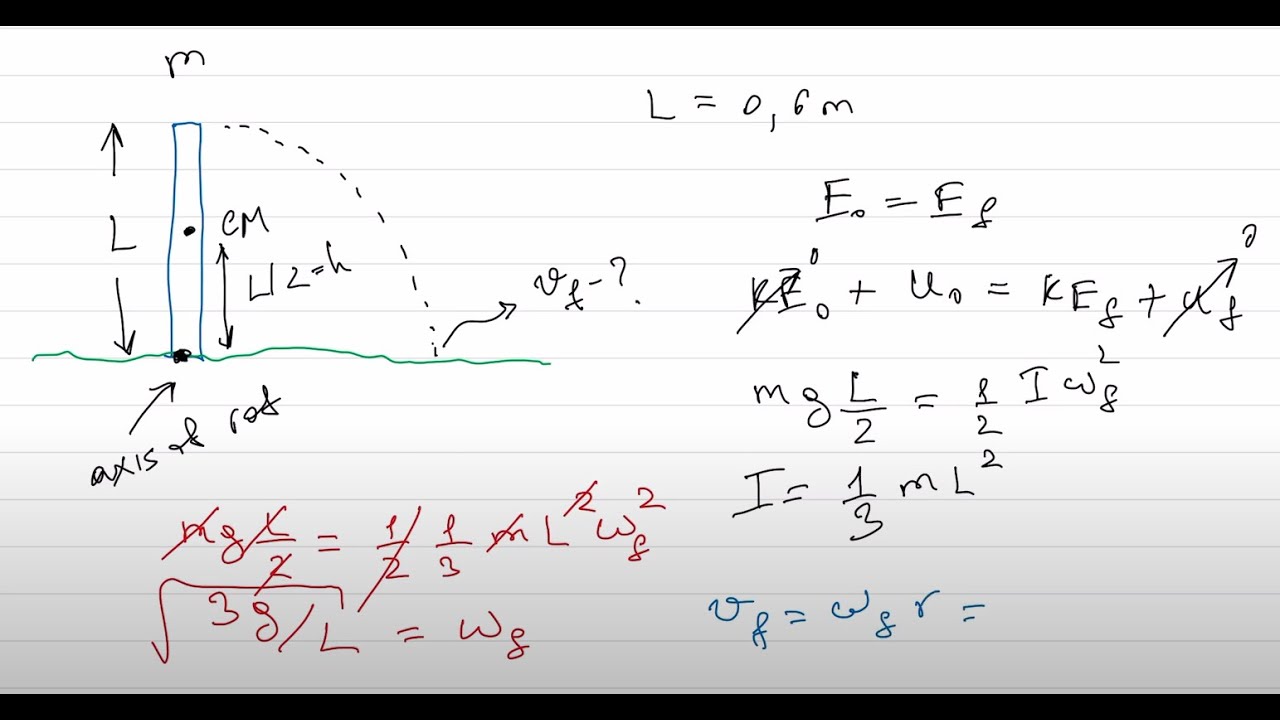 m
L = 0,6m
L
CM
L/2=h
v_f-?
axis of rot
E₀ = E_f
KE₀ 0 + U₀ = KE_f + U_f 0
mg L/2 = 1/2 I ω_f²
I = 1/3 m L²
mg L/2 = 1/2 1/3 m L² ω_f²
√3g/L = ω_f
v_f = ω_f r =